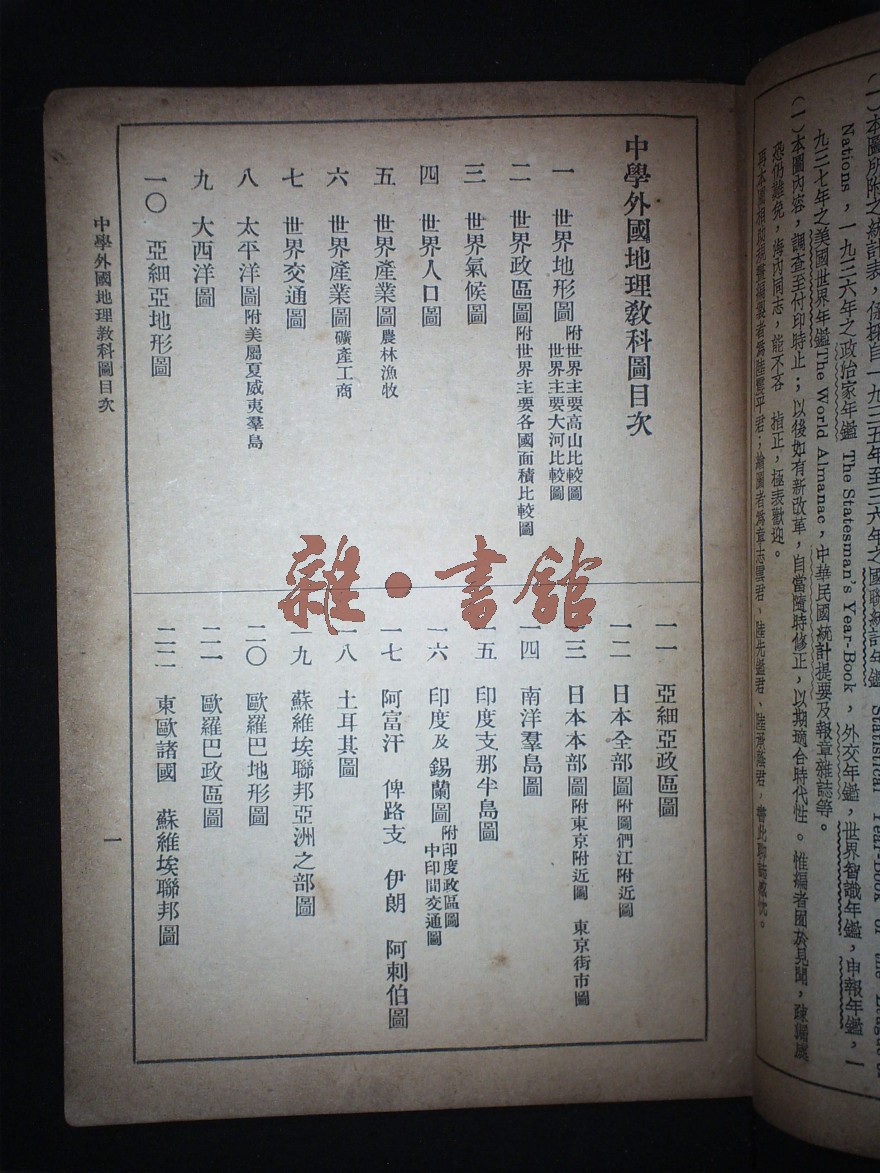 (一)本圖所附之統計表，係採自一九三五年至三六年之國聯統計年鑑 Statistical Year-book of the League of
Nations，一九三六年之政治家年鑑 The Statesman's Year-Book，外交年鑑，世界智識年鑑，申報年鑑，一
九三七年之美國世界年鑑The World Almanac，中華民國統計提要及報章雜誌等。
(一)本圖內容，調查至付印時止；以後如有新改革，自當隨時修正，以期適合時代性。惟編者囿於見聞，疎漏處
恐仍難免，海內同志，能不吝 指正，極表歡迎。
中學外國地理教科圖目次
一 世界地形圖 附世界主要高山比較圖 世界主要大河比較圖
二 世界政區圖 附世界主要各國面積比較圖
三 世界氣候圖
四 世界人口圖
五 世界產業圖 農林漁牧
六 世界產業圖 礦產工商
七 世界交通圖
八 太平洋圖 附美屬夏威夷羣島
九 大西洋圖
一〇 亞細亞地形圖
一一 亞細亞政區圖
一二 日本全部圖 附圖們江附近圖
一三 日本本部圖 附東京附近圖 東京街市圖
一四 南洋羣島圖
一五 印度支那半島圖
一六 印度及錫蘭圖 附印度政區圖 中印間交通圖
一七 阿富汗 俾路支 伊朗 阿剌伯圖
一八 土耳其圖
一九 蘇維埃聯邦亞洲之部圖
二〇 歐羅巴地形圖
二一 歐羅巴政區圖
二二 東歐諸國 蘇維埃聯邦圖
中學外國地理教科圖目次
一
雜·書館